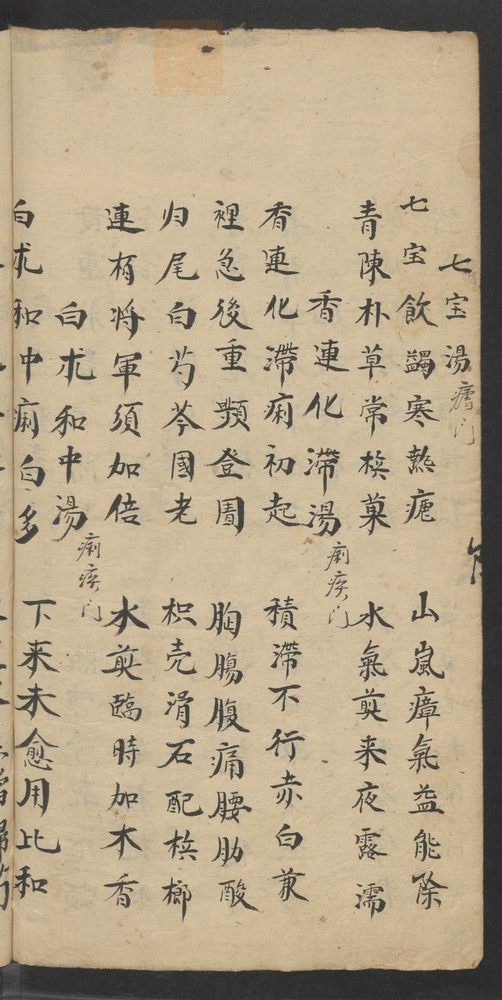 七宝湯 瘧门
七宝飲蠲寒熱瘧 山嵐瘴氣益能除
青陳朴草常梹菓 水氣煎来夜露濡
香連化滯湯 痢疾门
香連化滯痢初起 積滯不行赤白兼
裡急後重頻登圊 胸膓腹痛腰肋酸
归尾白芍芩國老 枳壳滑石配梹榔
連栢将軍須加倍 水煎臨時加木香
白朮和中湯 痢疾门
白朮和中痢白多 下来未愈用比和